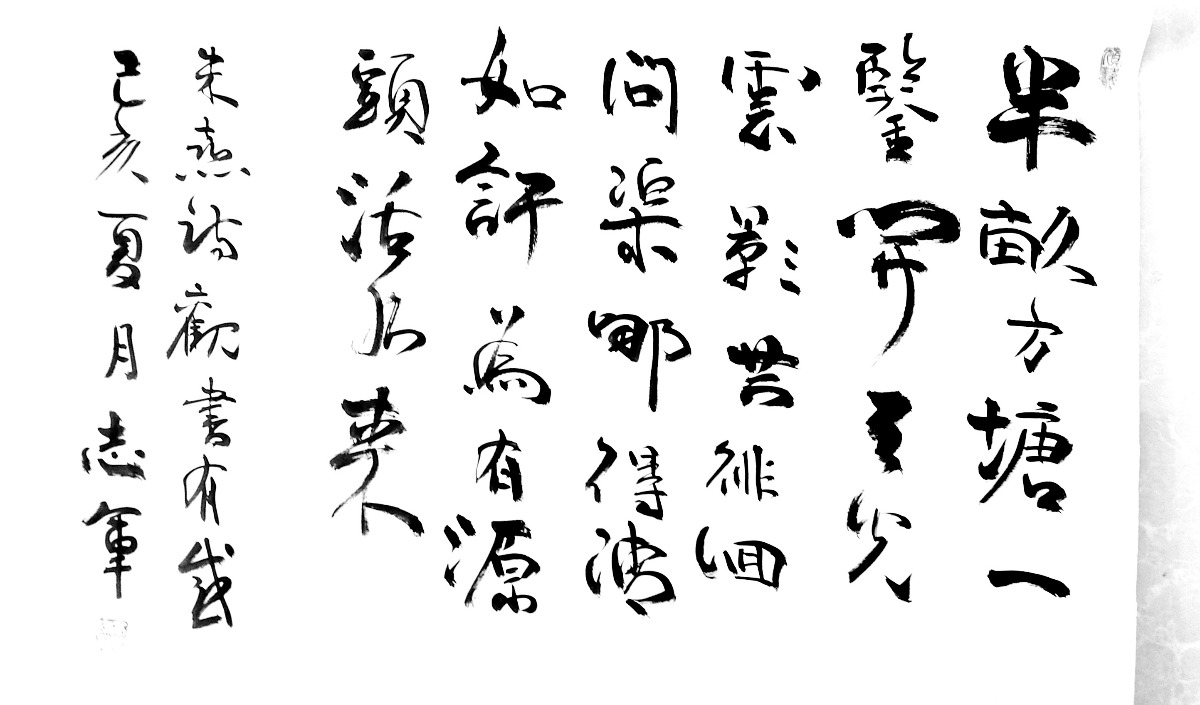 半畝方塘一
鑒開天光
雲影共徘徊
問渠那得清
如許為有源
頭活水來
朱熹詩觀書有感
己亥夏月志軍